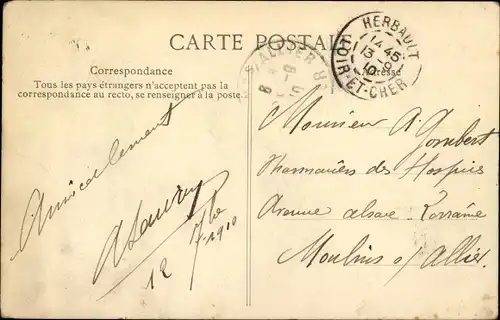 CARTE POSTALE
Correspondance
Tous les pays étrangers n'acceptent pas la
correspondance au recto, se renseigner à la poste.
Adresse
HERBAULT
14 45
13 -9
10
LOIR-ET-CHER
ALLIER
Amicalement
12 7bre 1910
Monsieur A. Gombert
Pharmacien des Hospices
Avenue Alsace Lorraine
Moulins s/ Allier